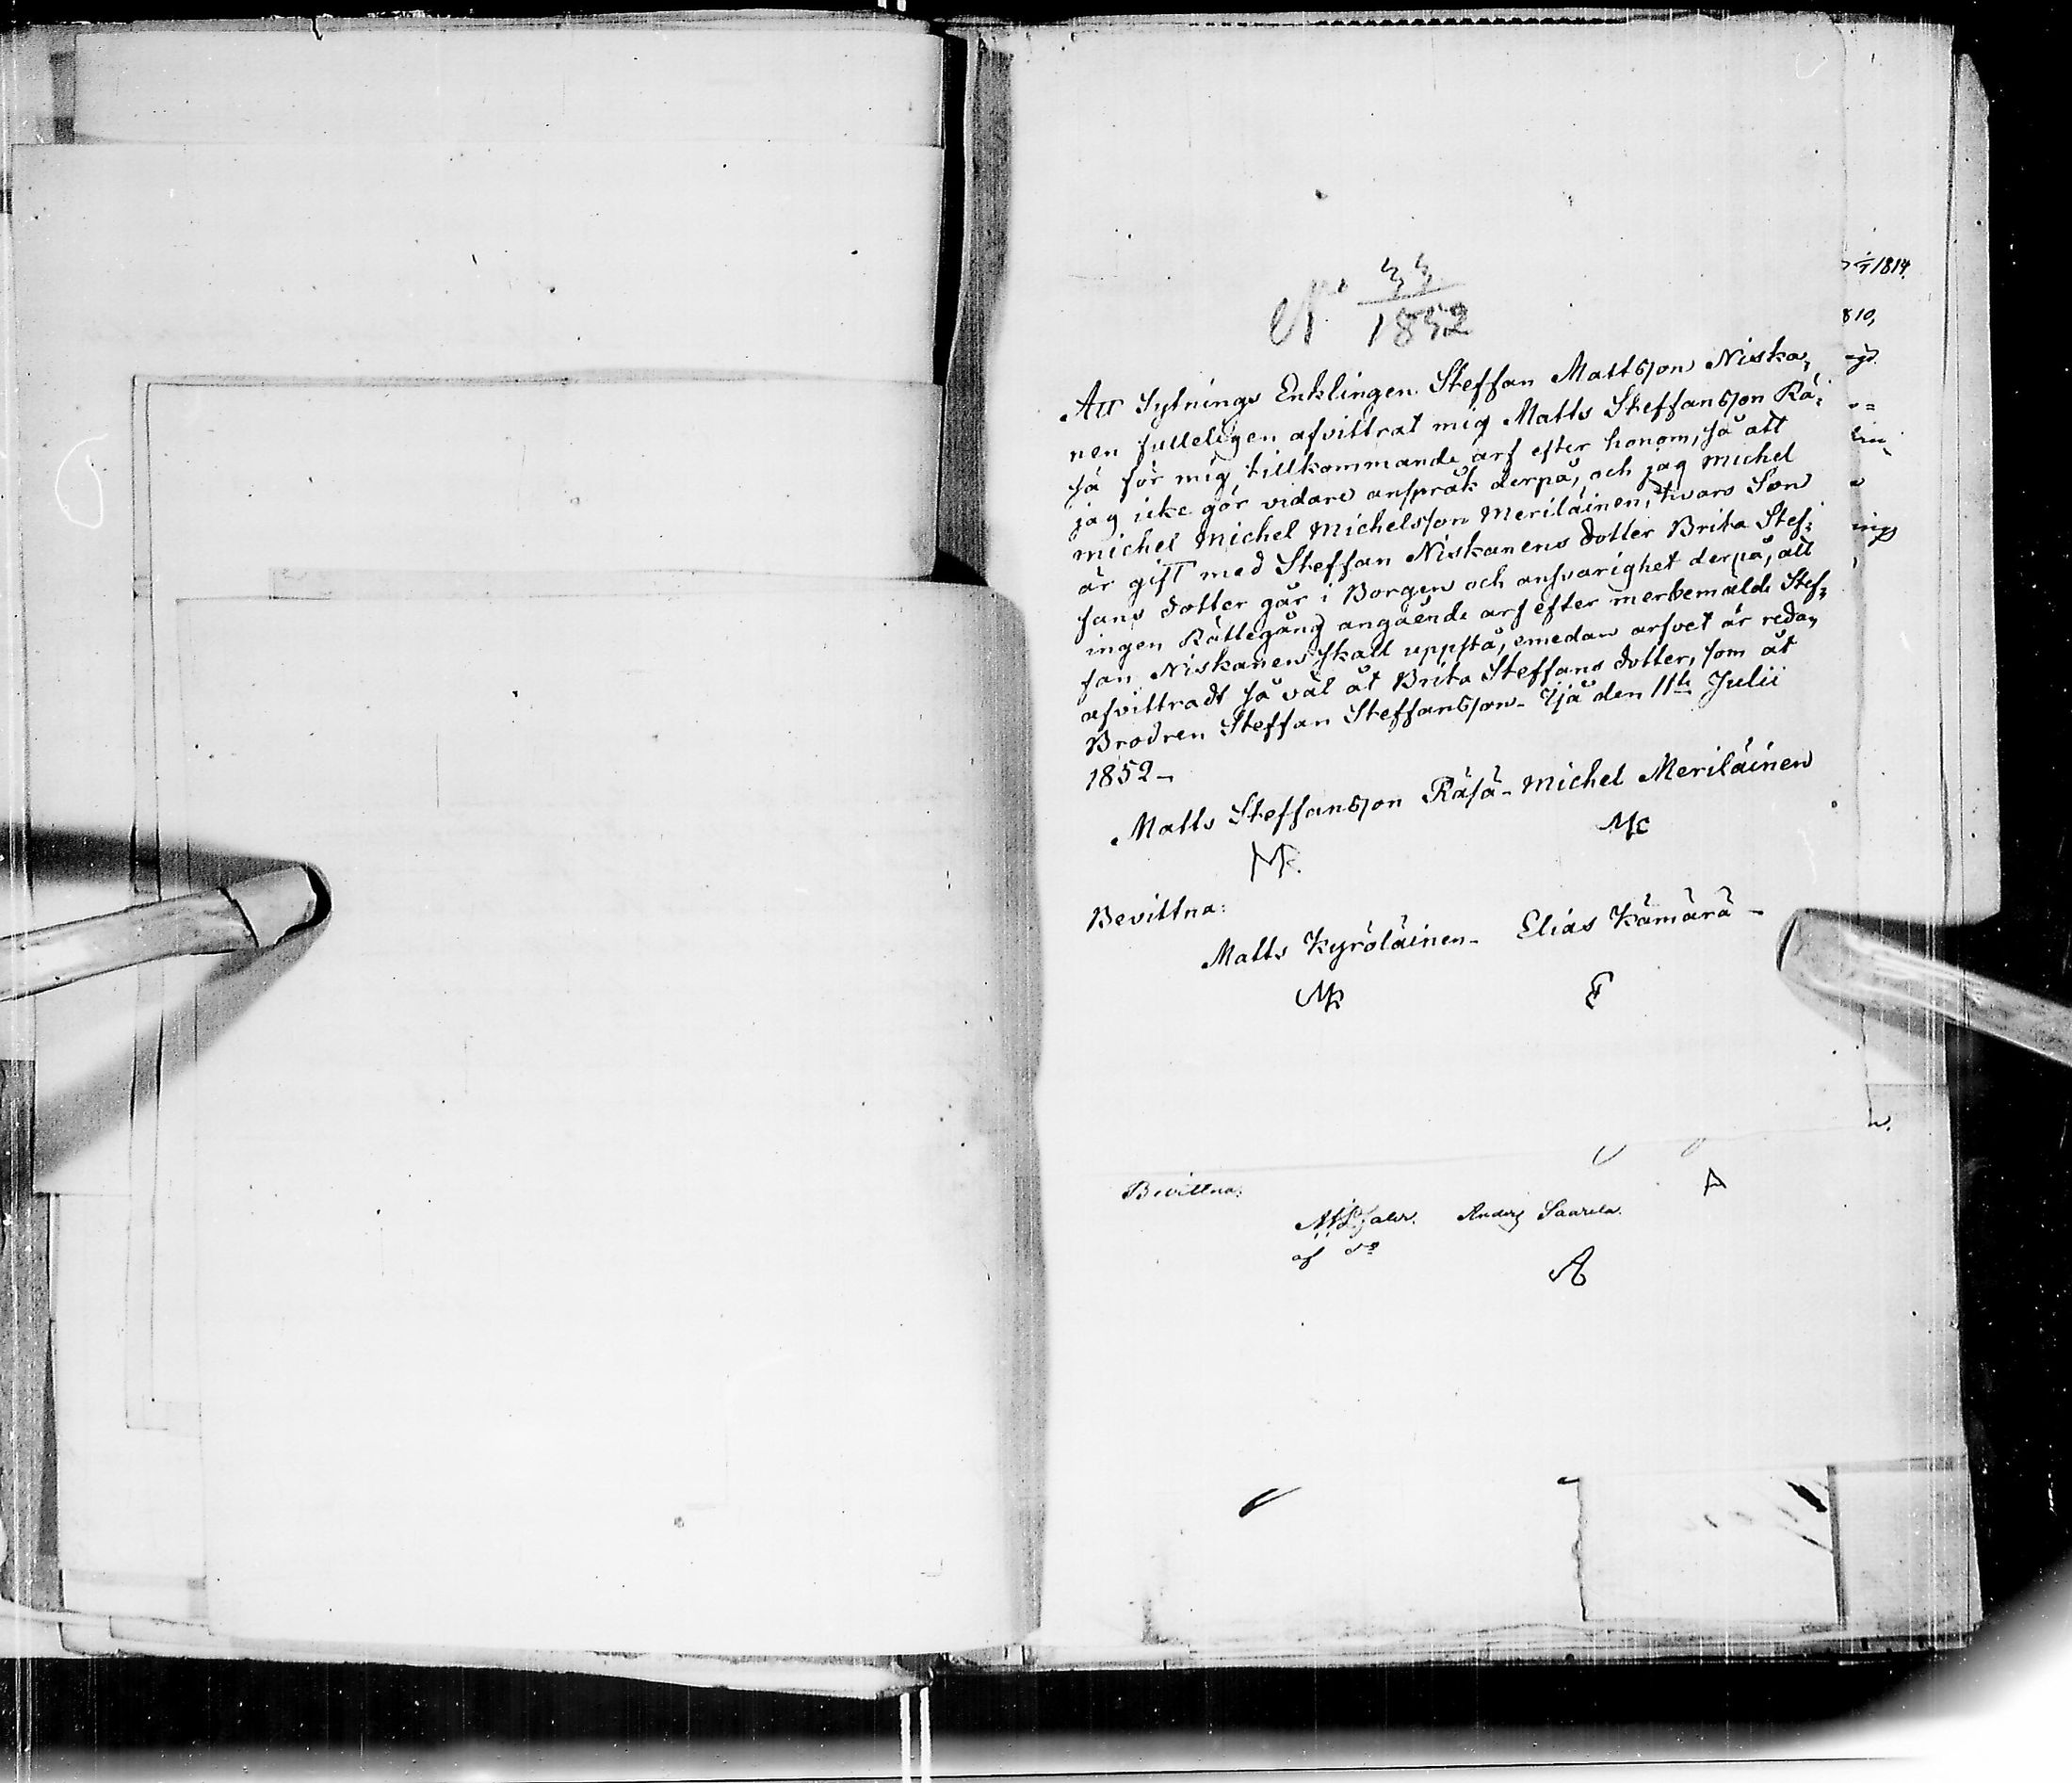 N:o 44
1852
Att Sytnings Enklingen Steffan Mattsson Niska,
nen fulleligen afvittrat mig Matts Steffansson Rä:
sä för mig, tillkommande arf efter honom, så att
jag icke gör vidare anspråk derpå, och jag michel
michel Michel Michelsson Meriläinen, hvars Son
är gift med Steffan Niskanens dotter Brita Stef:
fans dotter går i Borgen och ansvarighet derpå, att
ingen Rättegång angående arf efter merbemälde Stef:
fan Niskanen skall uppstå, emedan arfvet är redan
afvittradt så väl åt Brita Steffans dotter, som åt
Brodren Steffan Steffansson. Ijå den 11te Julii
1852 –
Matts Steffansson Räsä – Michel Meriläinen
Bevittna:
Matts Kyröläinen – Elias Kämärä –
Bevittna:
Anders Saarela.
1814.
810,
ings